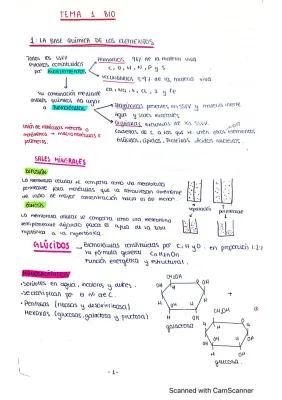 TEMA 1 BIO
1. LA BASE QUÍMICA DE LOS
Todos los SSVV
están constituidos
por Bioelementos
Primarios 96% de la materia viva
C, O, H, N, P y S
Secundarios 3,9% de la materia viva
Ca, Na, K, Cl, I y Fe
Su combinación mediante
enlaces químicos da lugar
a
Inorgánicas presentes en SSVV y materia inerte
Agua y sales minerales
Orgánicas exclusivas de los SSVV.
cadenas de C a los que se unen otros elementos
Glúcidos, lípidos, Proteínas, ácidos nucleicos
SALES MINERALES
DIFUSIÓN
La membrana celular se comporta como una membrana
permeable para moléculas que la atraviesan
de mayor concentración hacia el de menor.
ÓSMOSIS
La membrana celular se comporta como una membrana
semipermeable dejando el agua de la
hipotónica a la hipertónica.
GLÚCIDOS
Biomoléculas constituidas por C, H y O. en proporción 1:2:1
su fórmula general CnH2nOn
Función energética y estructural.
MONOSACÁRIDOS
- Solubles en agua, incoloros y dulces.
- Se clasifican por el nº de C.
- Pentosas (ribosas y desoxirribosas)
Hexosas (glucosas, galactosa y fructosa)
CH2OH
galactosa
+
CH2OH
glucosa.
- 1 -
Scanned with CamScanner